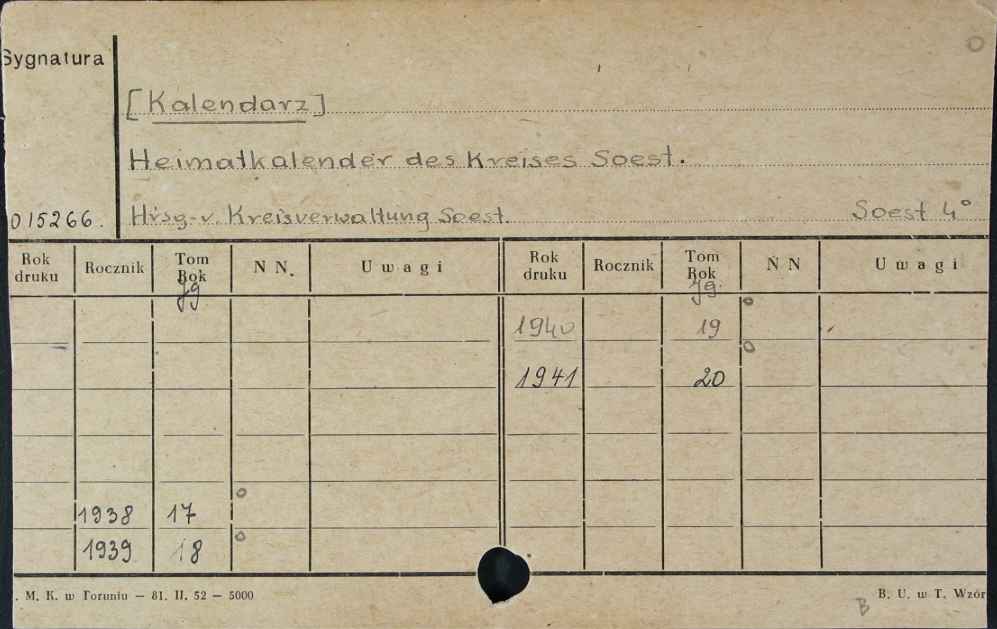 Sygnatura
[Kalendarz]
Heimatkalender des Kreises Soest.
015266. Hrsg. v. Kreisverwaltung Soest. Soest 4°
Rok druku Rocznik Tom Rok Jg N N. Uwagi Rok druku Rocznik Tom Rok Jg. N N Uwagi
1940 19
1941 20
1938 17
1939 18
. M. K. w Toruniu — 81. II. 52 — 5000 B. U. w T. Wzór
B